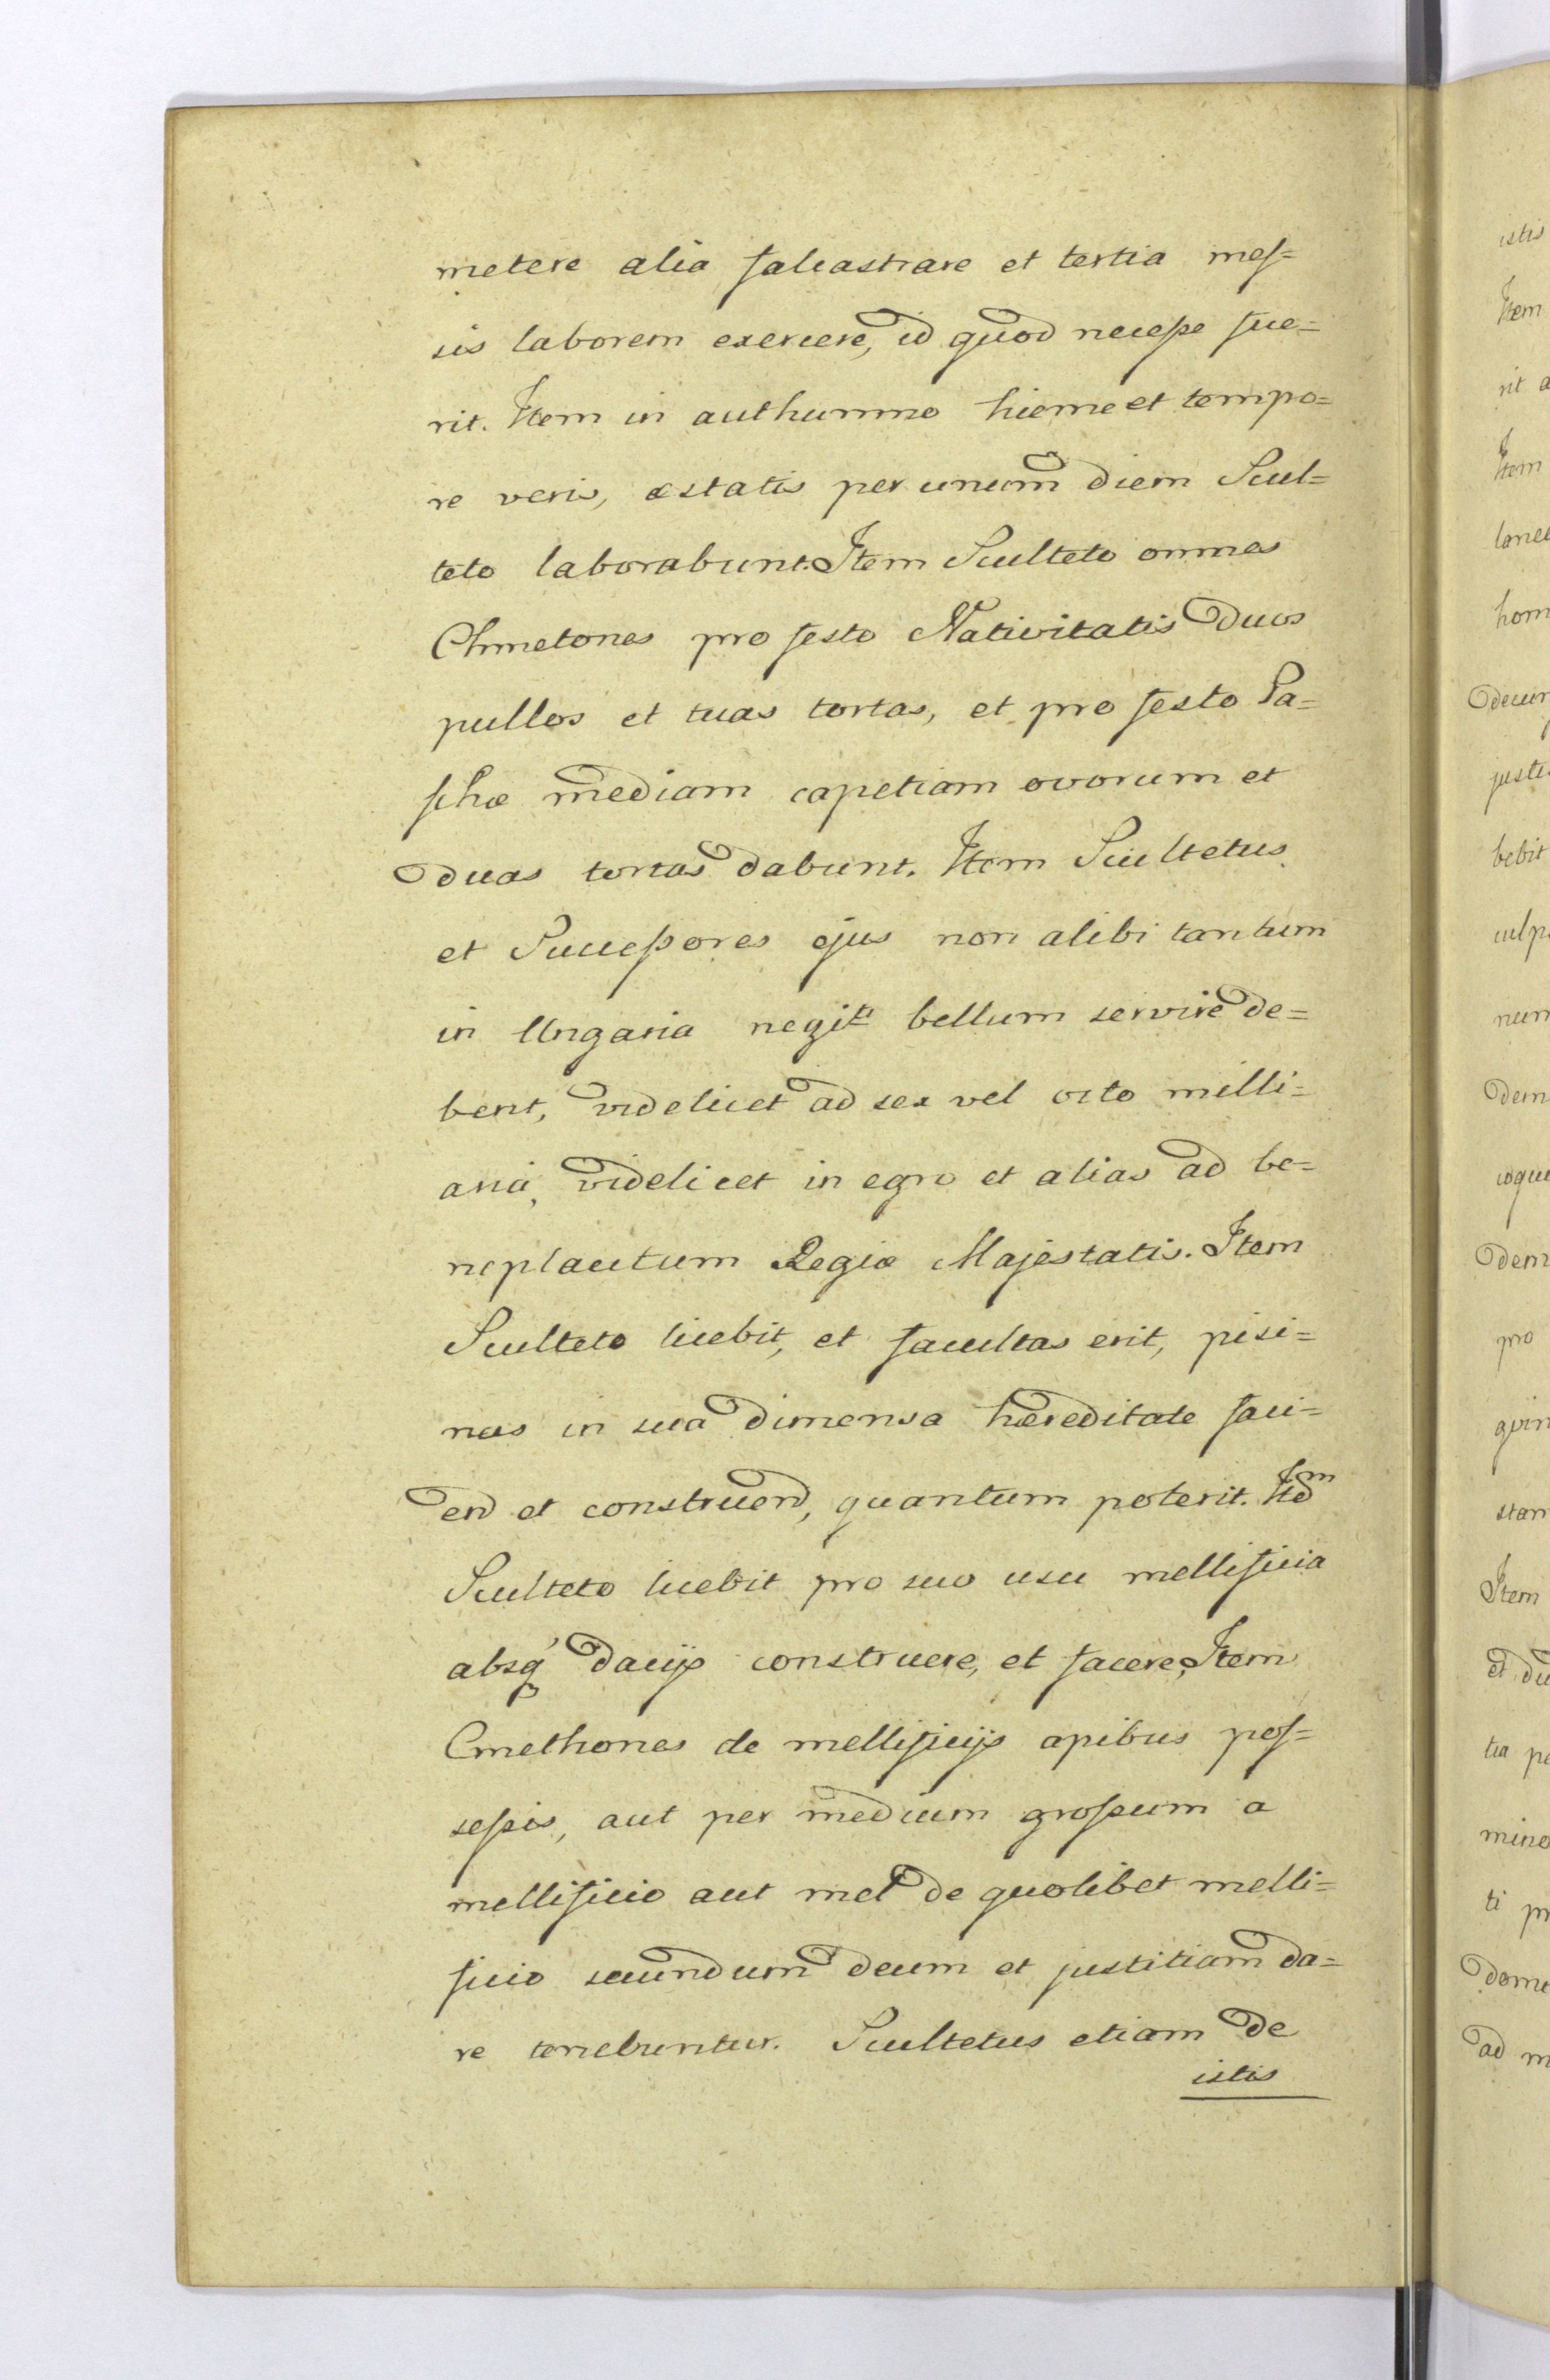 metere alia falcastrare et tertia mes=
sis laborem exercere, id quod necesse fue=
rit. Item in authumno hieme et tempo=
re veris, æstatis per unum diem Scul=
teto laborabunt. Item Sculteto omnes
Chmetones pro festo Nativitatis duos
pullos et tuas tortas, et pro festo Pa=
schæ mediam capetiam ovorum et
duas tortas dabunt. Item Scultetus
et Successores ejus non alibi tantum
in Ungaria bellum servire de=
bent, videlicet ad sex vel octo milli=
aria, videlicet in egro et alias ad be=
neplacitum Regiæ Majestatis. Item
Sculteto licebit, et facultas erit, pisi=
nas in sua dimensa hæreditate faci=
end et construend, quantum poterit. Item
Sculteto licebit pro suo usu mellificia
absq dacijs construere, et facere, Item
Cmethones de mellificijs apibus pos=
sessis, aut per medium grossum a
mellificio aut mel de quolibet melli=
ficio secundum deum et justitiam da=
re tenebuntur. Scultetus etiam de
istis
istis
Item
rit a
Item
lanei
hom
decur
justi
bebit
culp
num
dem
coque
dem
pro
quin
stan
Item
et du
tia pe
mino
ti pr
dome
ad m